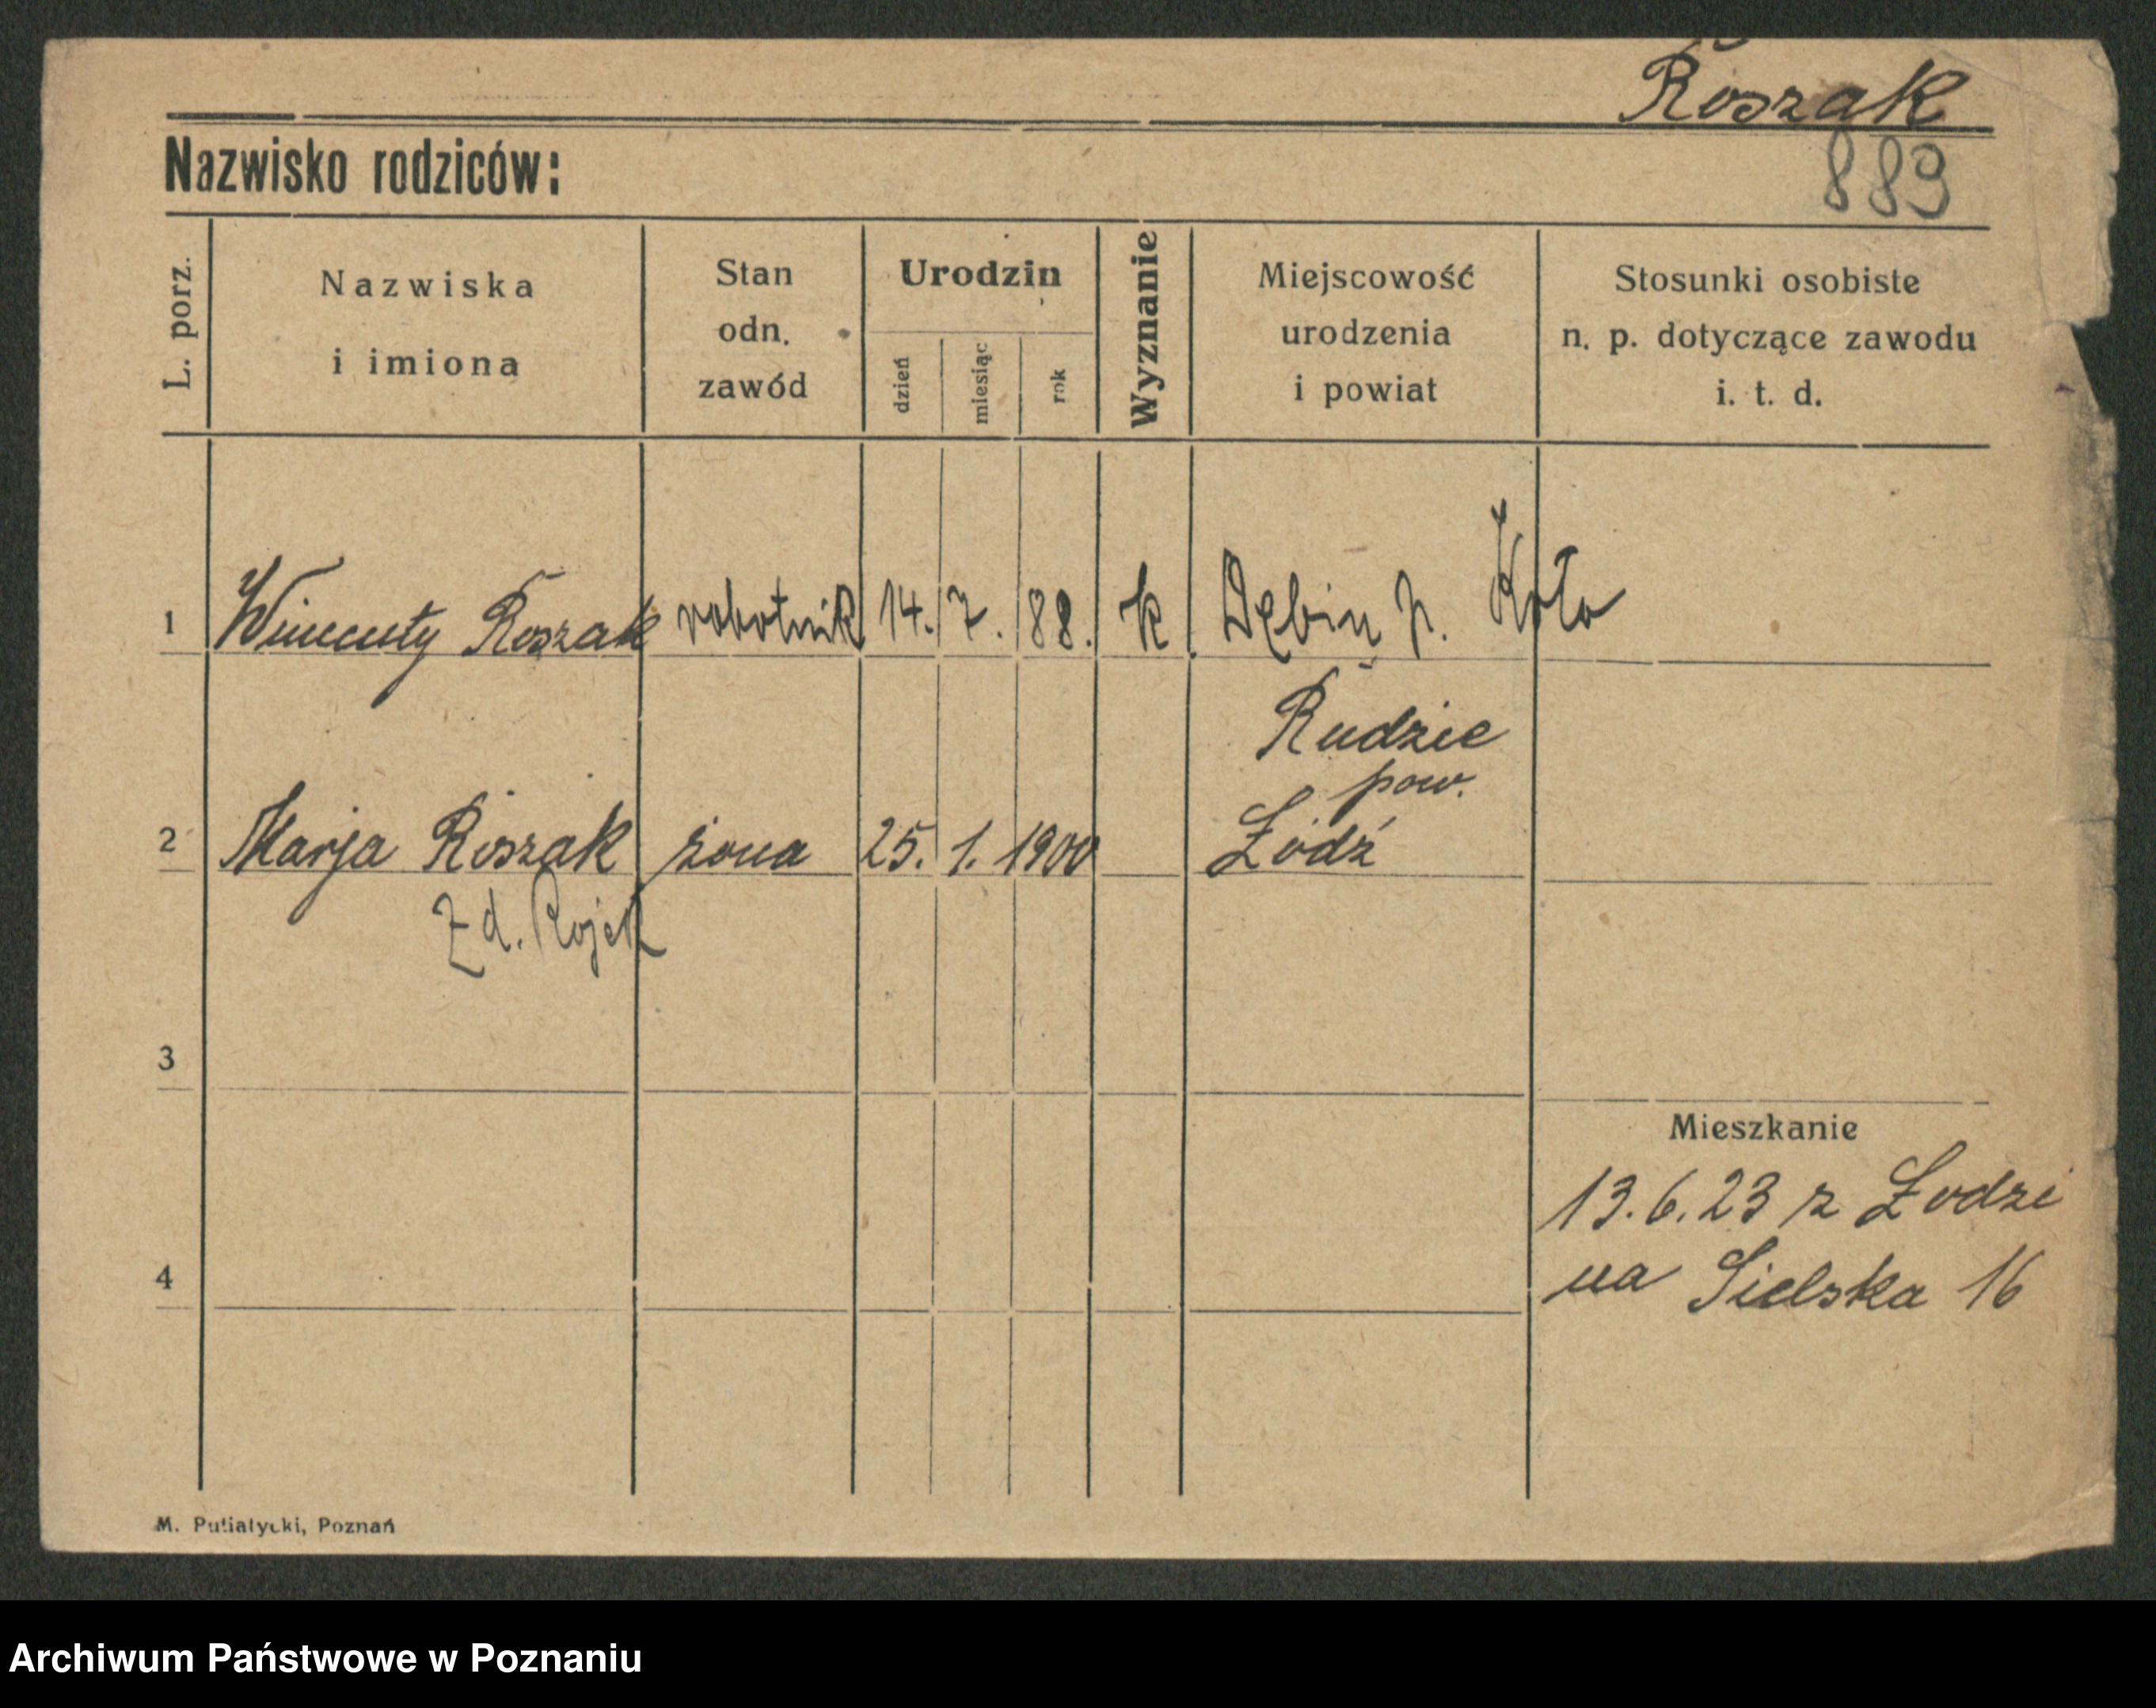 Roszak
Nazwisko rodziców:
889
L. porz.
Nazwiska
i imiona
Stan
odn.
zawód
Urodzin
dzień
miesiąc
rok
Wyznanie
Miejscowość
urodzenia
i powiat
Stosunki osobiste
n. p. dotyczące zawodu
i. t. d.
1 Wincenty Roszak robotnik 14. 7. 88. k. Dębin p. Koło
Rudzie
pow.
2 Marja Roszak żona 25. 1. 1900 Łódź
Z d. Rojek
3
Mieszkanie
13. 6. 23 z Łodzi
4
na Sielska 16
M. Putiatycki, Poznań
Archiwum Państwowe w Poznaniu